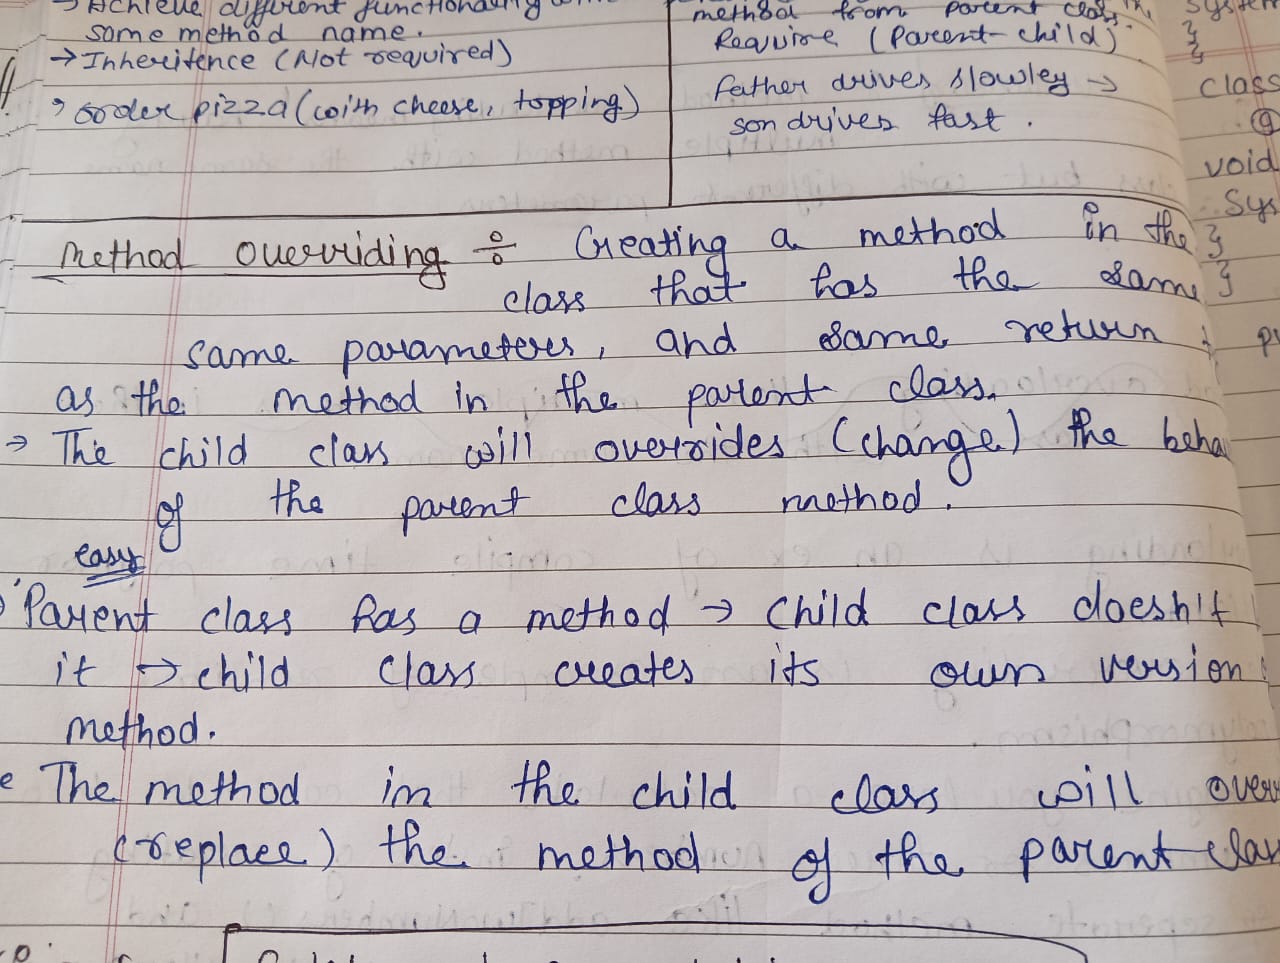 → Achieve different functionality
same method name.
→ Inheritence (Not required)
→ order pizza (with cheese, topping)
method from parent class.
Require (Parent-child)
Father drives slowley →
son drives fast.
System
}
}
class
@
void
Sys
}
}
Method overriding ÷ Creating a method in the
class that has the same
same parameters, and same return
as the method in the parent class.
→ The child class will overrides (change) the beha
of the parent class method.
easy
Parent class has a method → child class doesn't
it → child class creates its own version
method.
The method in the child class will over
(replace) the method of the parent clas